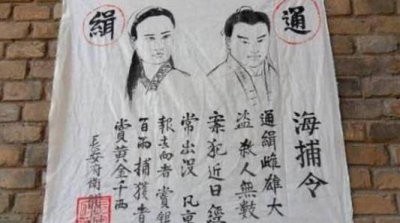 通緝
海捕令
通緝雌雄大
盜 殺人無數
案犯近日經
常出没 凡
報去向者 賞銀
百兩 捕獲者
賞黃金千兩
長安府衙